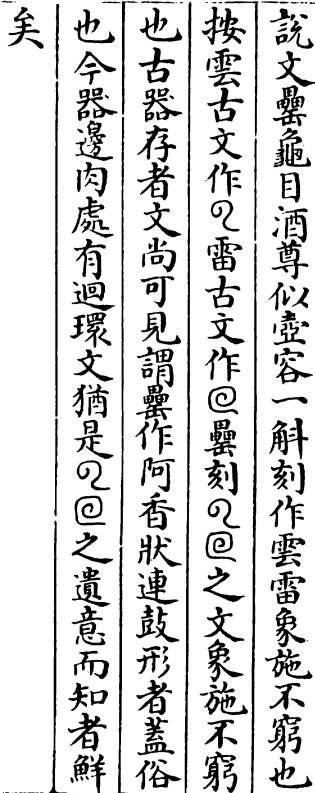 說文罍龜目酒尊似壺容一斛刻作雲雷象施不窮也
按雲古文作ᘐ雷古文作罍刻之文象施不窮
也古器存者文尚可見謂罍作阿香狀連鼓形者蓋俗
也今器邊肉處有迴環文猶是之遺意而知者鮮
矣